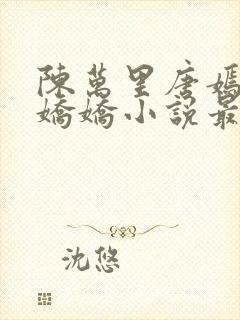 陳萬里唐嫣
嬌嬌小說最
沈悠